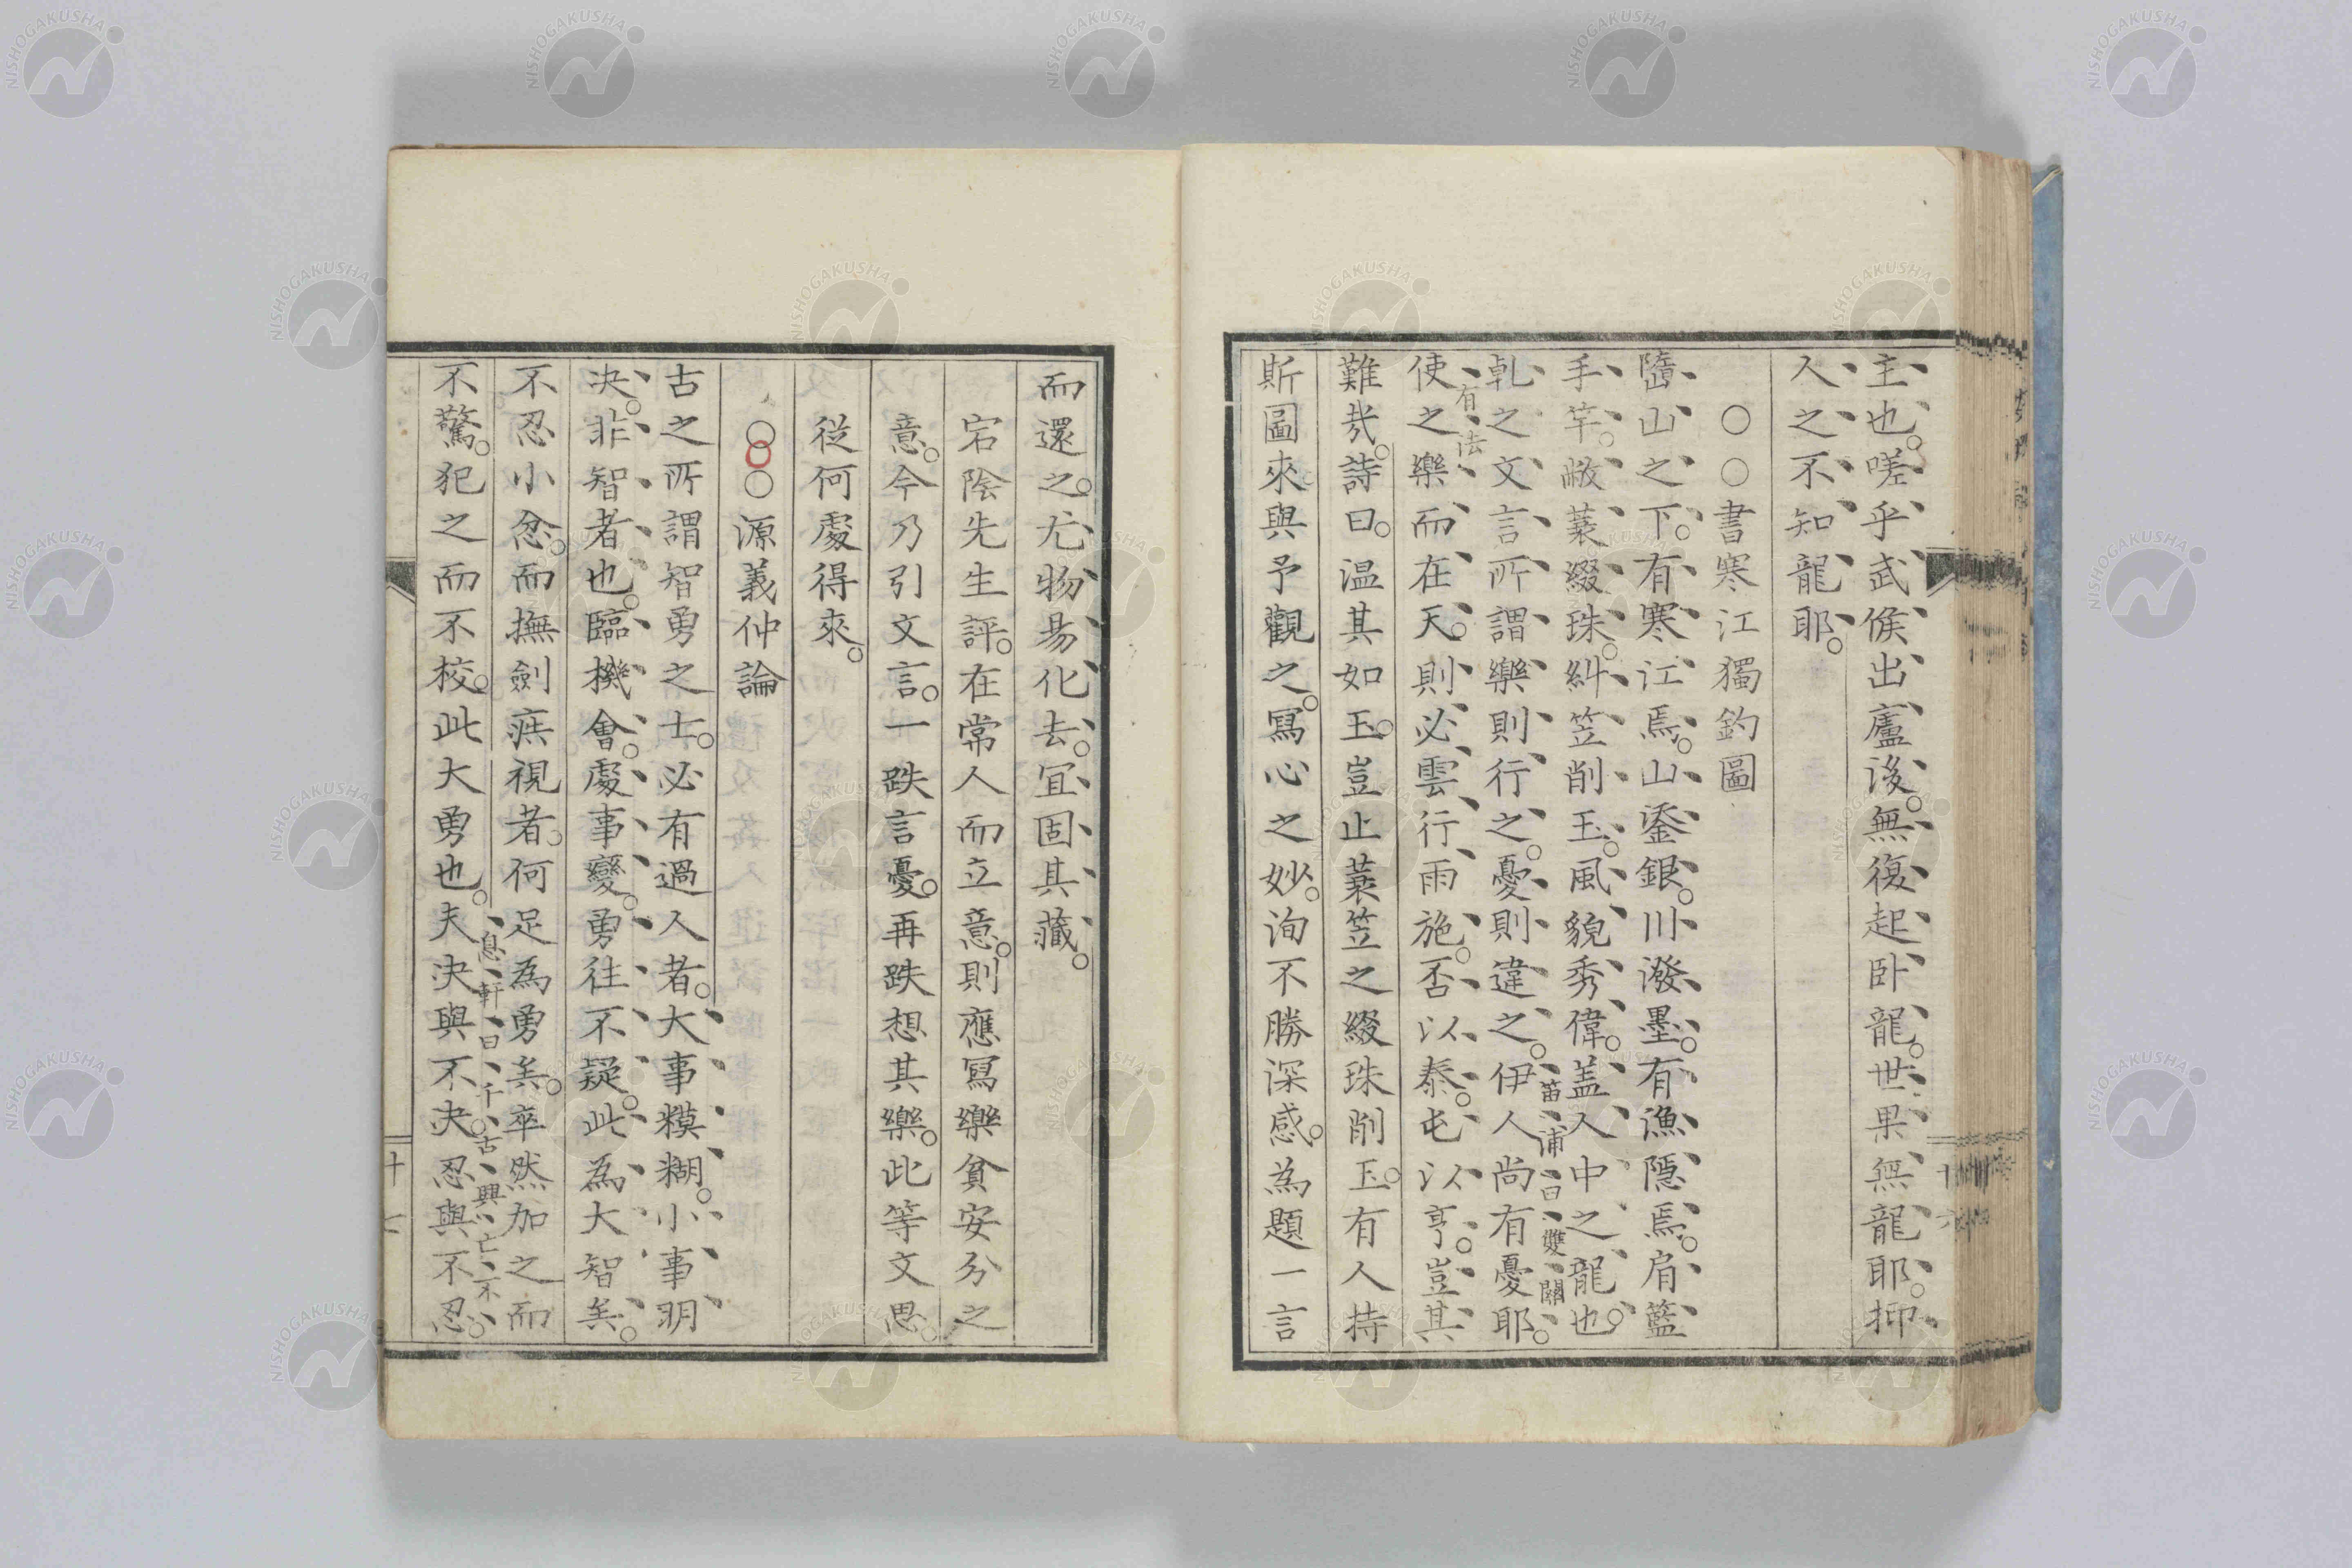 主也嗟乎武侯出廬後無復起卧龍世果無龍耶抑
人之不知龍耶
○○書寒江獨釣圖
墮山之下有寒江焉山鎏銀川潑墨有漁隱焉肩籃
手竿敝蓑綴珠糾笠削玉風貌秀偉盖人中之龍也
苗浦曰雙關
乹之文言所謂樂則行之憂則違之伊人尚有憂耶
有法
使之樂而在天則必雲行雨施否以泰屯以亨豈其
難㢤詩曰温其如玉豈止蓑笠之綴珠削玉有人持
斯圖來與予觀之冩心之妙洵不勝深感為題一言
而還之尤物易化去宜固其藏
宕陰先生評在常人而立意則應冩樂貧安分之
意今乃引文言一跌言憂再跌想其樂此等文思
従何處得來
○○○源義仲論
古之所謂智勇之士必有過人者大事糢糊小事明
决非智者也臨機會處事變勇往不疑此為大智矣
不忍小忿而撫劍疾視者何足為勇矣卒然加之而
息軒曰千古興亡不
不驚犯之而不校此大勇也夫决與不决忍與不忍
十七
NISHOGAKUSHA